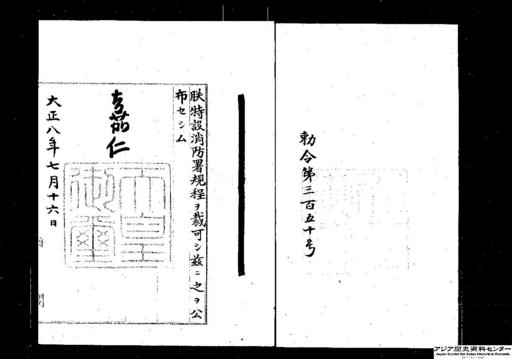 勅令第三百五十号
朕特設消防署規程ヲ裁可シ茲ニ之ヲ公
布セシム
嘉仁
天皇御璽
大正八年七月十六日
アジア歴史資料センター
Japan Center for Asian Historical Records